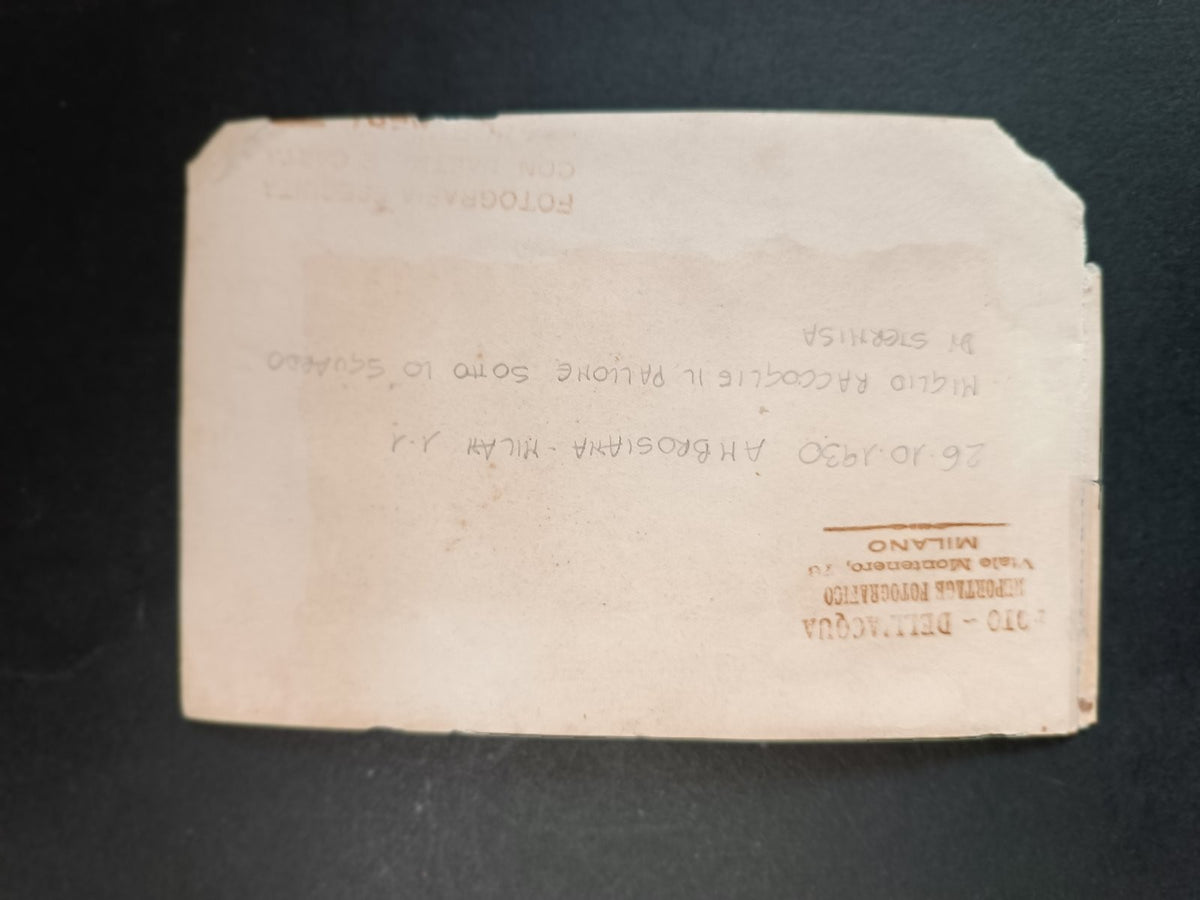 FOTO - DELL'ACQUA
REPORTAGE FOTOGRAFICO
Viale Montenero,
MILANO
26.10.1930 AMBROSIANA - MILAN 1-1
MIGLIO RACCOGLIE IL PALLONE SOTTO LO SGUARDO
DI STERNISA
FOTOGRAFIA ESEGUITA
CON LASTRE E CARTA